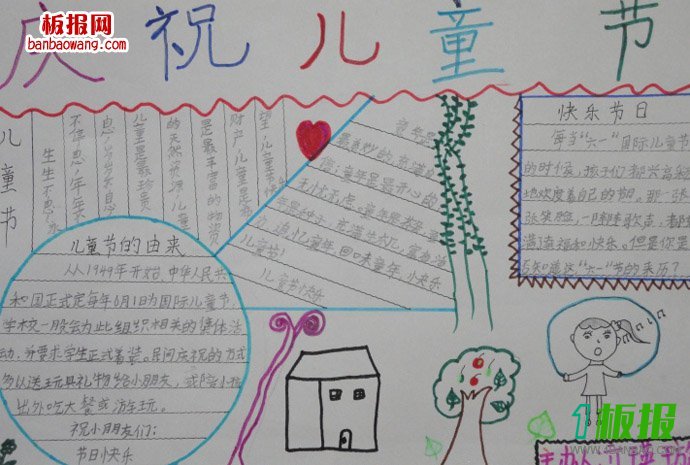 板报网
banbaowang.com
庆祝儿童节
儿童节
儿童节的由来
从1949年开始,中华人民共
和国正式定每年6月1日为国际儿童节,
学校一般会为此组织相关的集体活
动,并要求学生正式着装。民间庆祝的方式
多以送玩具礼物给小朋友,或陪小孩
出外吃大餐或游玩。
祝小朋友们:
节日快乐
望,儿童幸福
财产,儿童是
是最丰富的物资
的天然资源,儿童
儿童是最珍贵
息,岁岁不息
不停息,年年不
生生不息,永
童年是
最美妙的,充满
童年是最开心的
无忧无虑。童年是
充满
追忆童年,回味童年,快乐
儿童节!
儿童节快乐
快乐节日
每当“六一”国际儿童节
的时候,孩子们都兴高采
地欢度着自己的节日。那一张
张笑脸,一阵阵歌声,都
满了幸福和快乐。但是你是
否知道这“六一”节的来历了
1板报